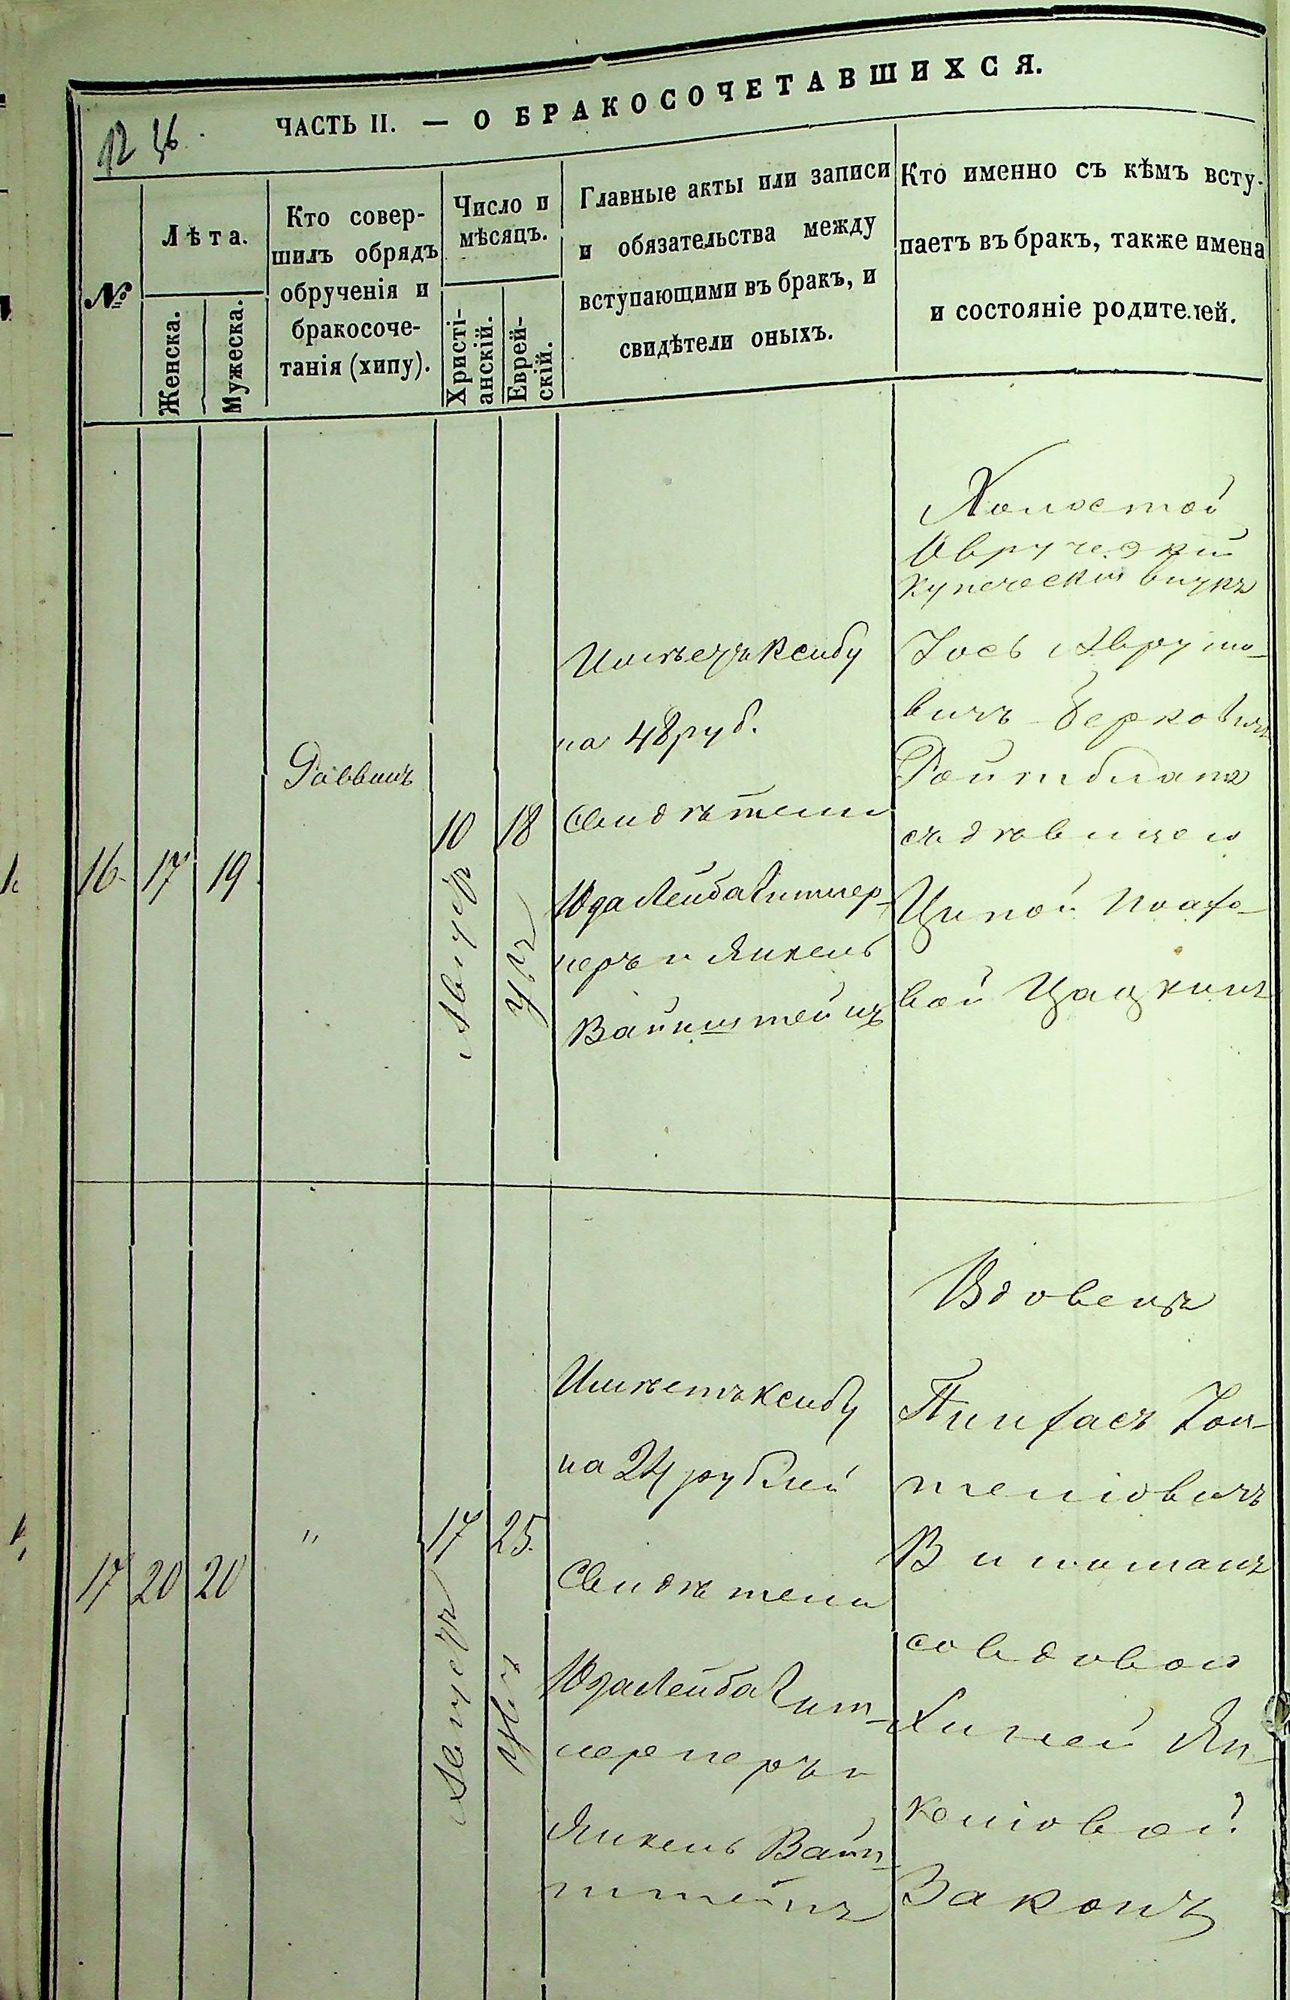 ЧАСТЬ II. — О БРАКОСОЧЕТАВШИХСЯ.
№
Лѣта.
Женска.
Мужеска.
Кто совер-
шилъ обрядъ
обрученія и
бракосоче-
танія (хипу).
Число и
мѣсяцъ.
Христі-
анскій.
Еврей-
скій.
Главные акты или записи
и обязательства между
вступающими въ бракъ, и
свидѣтели оныхъ.
Кто именно съ кѣмъ всту-
паетъ въ бракъ, также имена
и состояніе родителей.
16
17
19
Раввинъ
10
18
на 48 руб.
Свидѣтели
Юда Лейба
и Янкель
Вайнштейнъ
Холостой
Овручский
купеческий внукъ
Іось Авру мо-
вичъ Беркович
Ройтблатъ
съ дѣвицею
Ципой
вой Цацкинъ
17
20
20
"
17
25
Имѣетъ ксибу
на 24 рублей
Свидѣтели
Юда Лейба
Янкель Вайн-
штейнъ
Вдовецъ
Пинхасъ
Вишманъ
со вдовою
Ян-
келіовой
Законъ